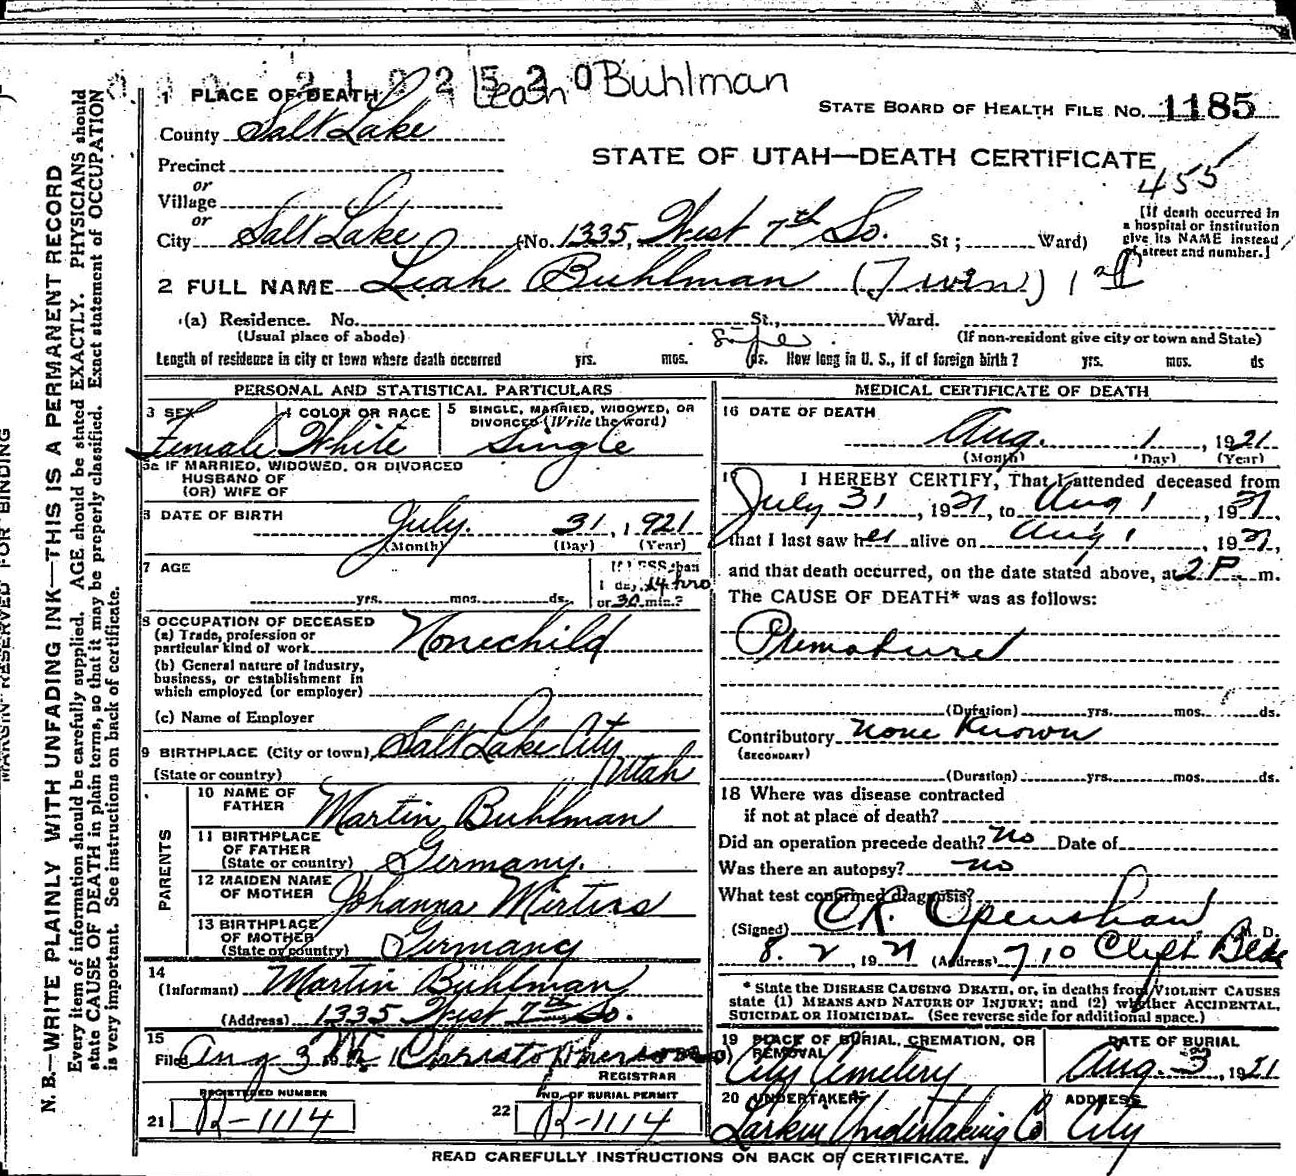 Leah Buhlman
1 PLACE OF DEATH
STATE BOARD OF HEALTH FILE NO. 1185
County Salt Lake
STATE OF UTAH—DEATH CERTIFICATE
455
Precinct
or
Village
or
City Salt Lake (No. 1335, West 7th So. St; Ward)
[If death occurred in
a hospital or institution
give its NAME instead
of street and number.]
2 FULL NAME Leah Buhlman (Twin) 1st
(a) Residence. No. St., Ward.
(Usual place of abode) (If non-resident give city or town and State)
Length of residence in city or town where death occurred yrs. mos. ds. How long in U. S., if of foreign birth? yrs. mos. ds
PERSONAL AND STATISTICAL PARTICULARS
3 SEX Female
4 COLOR OR RACE White
5 SINGLE, MARRIED, WIDOWED, OR
DIVORCED (Write the word)
Single
5a IF MARRIED, WIDOWED, OR DIVORCED
HUSBAND OF
(OR) WIFE OF
DATE OF BIRTH
July. 31, 1921
(Month) (Day) (Year)
7 AGE
yrs. mos. ds.
If LESS than
1 da, 14 hrs
or 30 min.?
8 OCCUPATION OF DECEASED
(a) Trade, profession or
particular kind of work None child
(b) General nature of industry,
business, or establishment in
which employed (or employer)
(c) Name of Employer
9 BIRTHPLACE (City or town) Salt Lake City
(State or country) Utah
PARENTS
10 NAME OF
FATHER Martin Buhlman
11 BIRTHPLACE
OF FATHER
(State or country) Germany.
12 MAIDEN NAME
OF MOTHER Johanna Mirtins
13 BIRTHPLACE
OF MOTHER
(State or country) Germany
14
(Informant) Martin Buhlman
(Address) 1335 West 7th So.
15
Filed Aug 3 Christopherson
REGISTRAR
REGISTERED NUMBER
21 R-1114
NO. OF BURIAL PERMIT
22 R-1114
MEDICAL CERTIFICATE OF DEATH
16 DATE OF DEATH
Aug. 1, 1921
(Month) (Day) (Year)
17 I HEREBY CERTIFY, That I attended deceased from
July 31, 1921, to Aug 1, 1921,
that I last saw her alive on Aug 1, 1921,
and that death occurred, on the date stated above, at 2 P. m.
The CAUSE OF DEATH* was as follows:
Premature
(Duration) yrs. mos. ds.
Contributory None Known
(SECONDARY)
(Duration) yrs. mos. ds.
18 Where was disease contracted
if not at place of death?
Did an operation precede death? No Date of
Was there an autopsy? no
What test confirmed diagnosis?
(Signed) C R. Openshaw M. D.
8. 2, 1921 (Address) 710 Clift Bldg
* State the DISEASE CAUSING DEATH, or, in deaths from VIOLENT CAUSES
state (1) MEANS AND NATURE OF INJURY; and (2) whether ACCIDENTAL,
SUICIDAL OR HOMICIDAL. (See reverse side for additional space.)
19 PLACE OF BURIAL, CREMATION, OR
REMOVAL
City Cemetery
DATE OF BURIAL
Aug. 3, 1921
20 UNDERTAKER
Larkin Undertaking Co
ADDRESS
City
READ CAREFULLY INSTRUCTIONS ON BACK OF CERTIFICATE.
MARGIN RESERVED FOR BINDING
N. B.—WRITE PLAINLY WITH UNFADING INK—THIS IS A PERMANENT RECORD
Every item of information should be carefully supplied. AGE should be stated EXACTLY. PHYSICIANS should
state CAUSE OF DEATH in plain terms, so that it may be properly classified. Exact statement of OCCUPATION
is very important. See instructions on back of certificate.